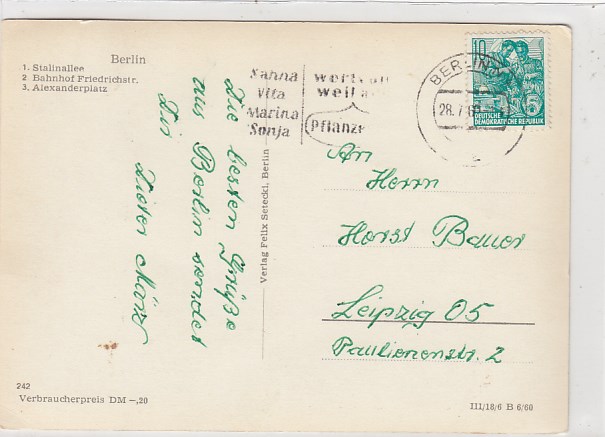 Berlin
1. Stalinallee
2 Bahnhof Friedrichstr.
3. Alexanderplatz
Sanna
Vita
Marina
Sonja
wertvoll
weil a
Pflanze
BERLIN
28.7.60
10
5
DEUTSCHE
DEMOKRATISCHE REPUBLIK
Die besten Grüße
aus Berlin sendet
Dir
Dieter März
Verlag Felix Setecki, Berlin
An
Herrn
Horst Bauer
Leipzig O5
Paulinenstr. 2
242
Verbraucherpreis DM -,20
III/18/6 B 6/60